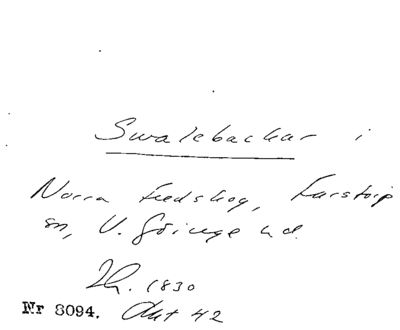 Svalebackar i
Norra Fredskog, Farstorp
sn, V. Göinge hd.
Lh. 1830
Nr 8094. Akt 42